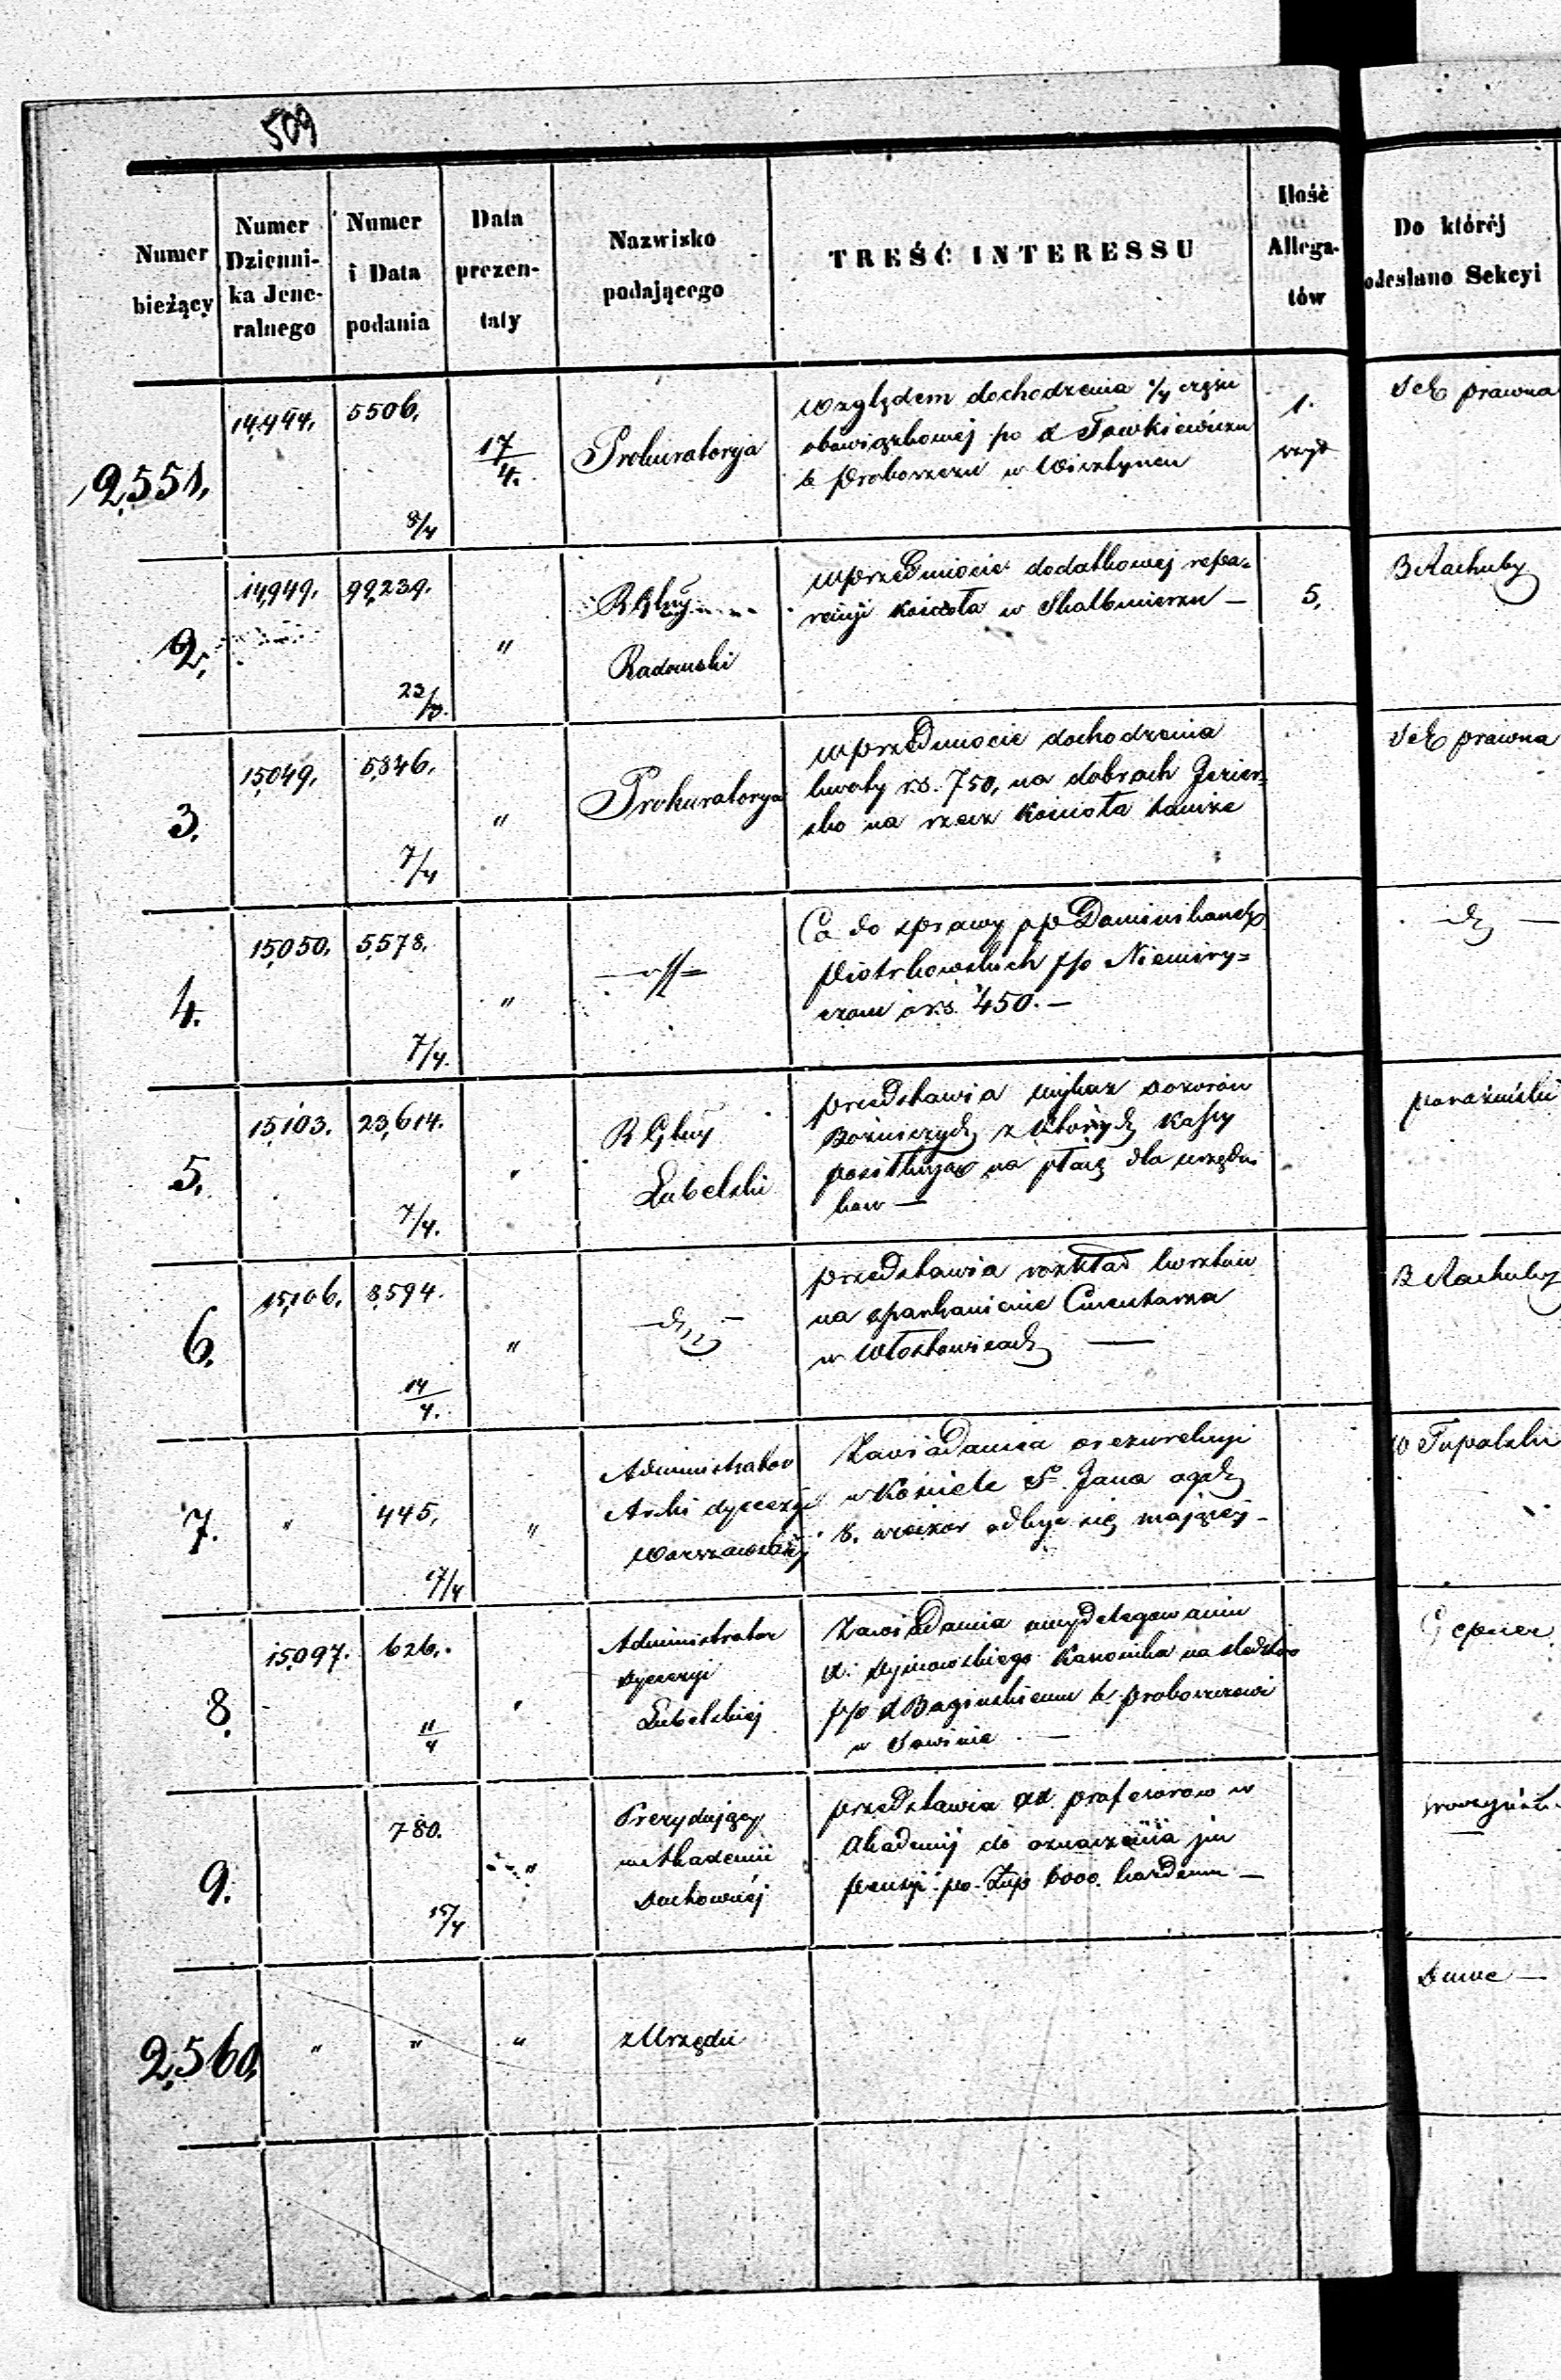 509
Numer bieżący
Numer Dzienni-ka Jene-ralnego
Numer i Data podania
Data prezen-taty
Nazwisko podającego
TREŚĆ INTERESSU
Ilość Allega-tów
Do któréj odesłano Sekcyi
2,551, 14,944, 5506, 8/4 17/4. Prokuratorya
Względem dochodzenia 1/4 części
obowiązkowej po X
b Proboszczu w Wisztyncu
1.
Sek prawna
2, 14,949. 99,239. 23/3. " R Głny
Radomski
w przedmiocie dodatkowej repa=
racyi kościoła w Skalbmierzu —
5,
B Rachuby
3. 15,049, 5,846, 7/4 " Prokuratorya
w przedmiocie dochodzenia
kwoty rs. 750, na dobrach Jezier=
sko na rzecz Kościoła
Sek prawna
4. 15,050, 5,578. 7/4. "
Co do sprawy pp Dominikanów
Piotrkowskich p/o Niemiry=
czom o rs. 450. —
5, 15,103. 23,614. 7/4. " R Głny
Lubelski
przedstawia wykaz dozorów
Bóżniczych z których Kassy
posiłkują na płacę dla urzędni
ków —
6. 15,106, 8,594. 14/4. "
przedstawia rozkład kosztów
na oparkanienie Cmentarza
w Włostowicach —
B Rachuby
7. " 445, 17/4 " Administrator
Archi dyecezyi
Warszawskiej
Zawiadamia o rezurekcyi
w Kościele Sgo Jana o godz
8. wieczor odbyć się mającej —
8. 15,097. 626,. 11/4 " Administrator
Dyecezyi
Lubelskiej
Zawiadamia o wydelegowaniu
X. Kanonika na śledztwo
p/o X Bagińskiemu b proboszczowi
w Sawinie —
Gepner
9. 780. 15/4 " Prezydujący
w Akademii
Duchownej
przedstawia XX profesorów w
Akademij do oznaczenia jm
pensyi po złp 6000. każdemu —
2,560, " " " z Urzędu